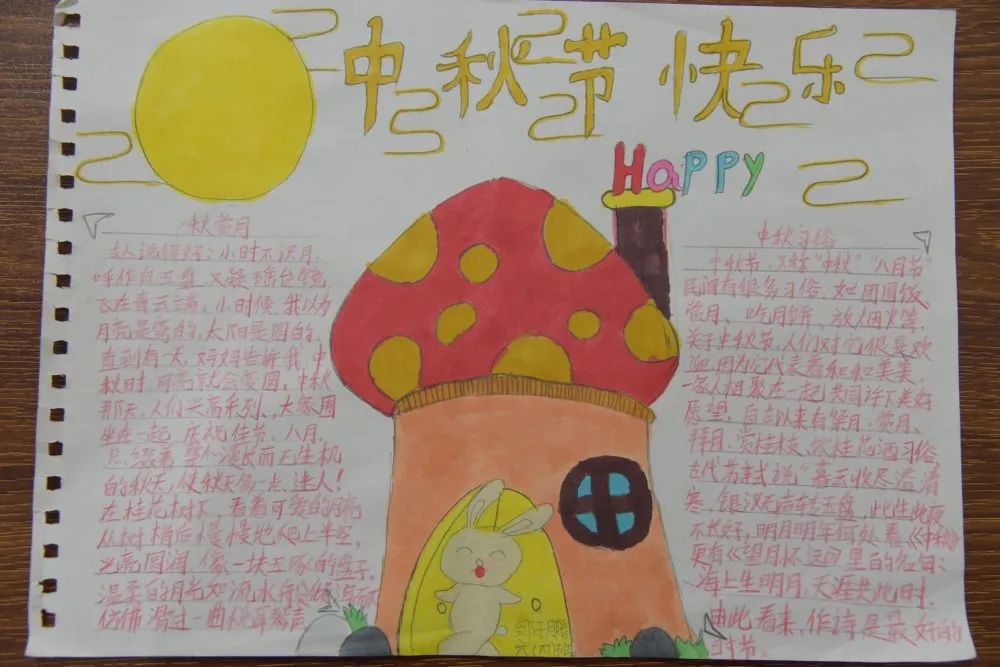 中秋节快乐
Happy
秋赏月
古人说得好:小时不识月,
呼作白玉盘,又疑瑶台镜,
飞在青云端。小时候,我以为
月亮是弯的,太阳是圆的,
直到有一天,妈妈告诉我,中
秋时,月亮就会变圆,中秋
那天,人们兴高采烈,大家围
坐在一起,庆祝佳节。八月,
点缀着整个漫长而无生机
的秋天,使秋天多一点迷人!
在桂花树下,看着可爱的月亮
从树梢后慢慢地爬上半空,
光亮圆润,像一块玉琢的盘子。
温柔的月光如流水
仿佛滑过一曲悦耳
中秋习俗
中秋节,又称“中秋”“八月节”
民间有很多习俗,如团圆饭、
赏月、吃月饼、放烟火等,
关于中秋节,人们对它很是欢
迎,因为它代表着和和美美,
一家人相聚在一起共同许下美好
愿望,自古以来有祭月、赏月、
拜月、赏桂枝、饮桂花酒习俗
古代苏轼说“暮云收尽溢清
寒,银汉无声转玉盘,此生此夜
不长好,明月明年何处看《
更有《望月怀远》里的名句:
海上生明月,天涯共此时.
由此看来,作诗是最好的